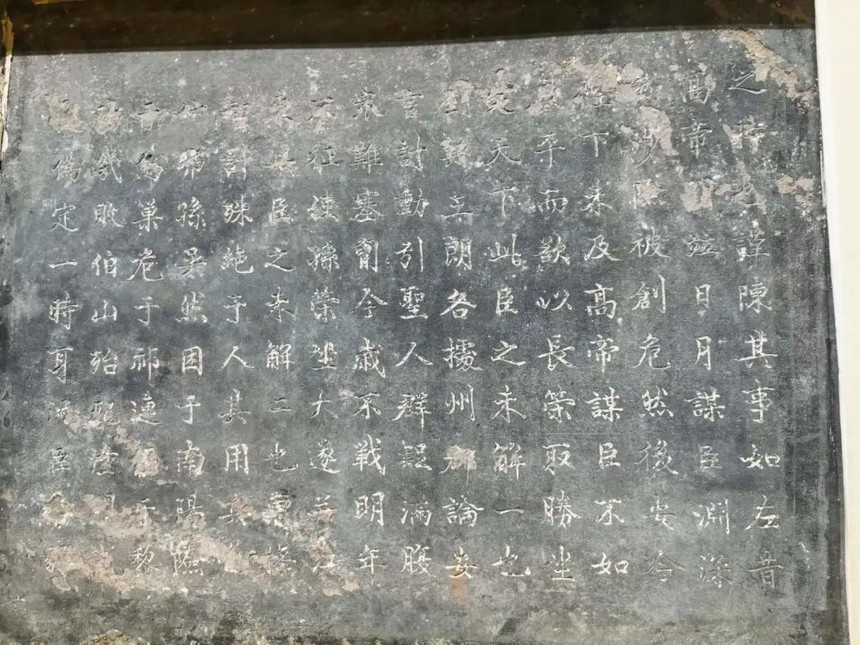 之時也謹陳其事如左昔
高帝明竝日月謀臣淵深
涉險被創危然後安今
陛下未及高帝謀臣不如
平而欲以長策取勝坐
定天下此臣之未解一也
劉繇王朗各據州郡論安
言計動引聖人群疑滿腹
衆難塞胷今歲不戰明年
不征使孫策坐大遂并江
東此臣之未解二也曹操
智計殊絶于人其用兵
孫吳然困于南陽險
烏巢危于祁連偪于黎
幾敗伯山殆死潼關
偽定一時耳況臣